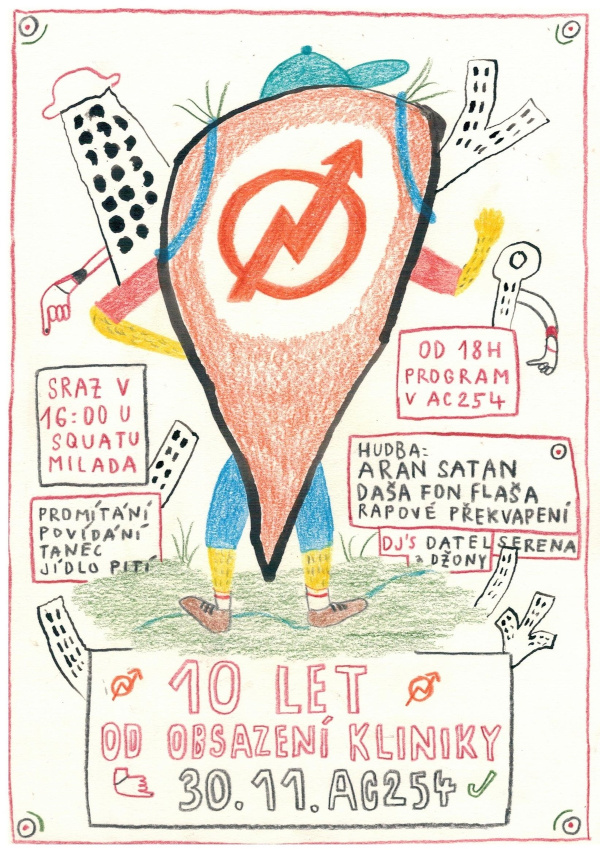 SRAZ V
16:00 U
SQUATU
MILADA
OD 18H
PROGRAM
V AC254
PROMÍTÁNÍ
POVÍDÁNÍ
TANEC
JÍDLO PITÍ
HUDBA:
ARAN SATAN
DAŠA FON FLAŠA
RAPOVÉ PŘEKVAPENÍ
DJ'S DATEL SERENA
z DŽONY
10 LET
OD OBSAZENÍ KLINIKY
30.11. AC254